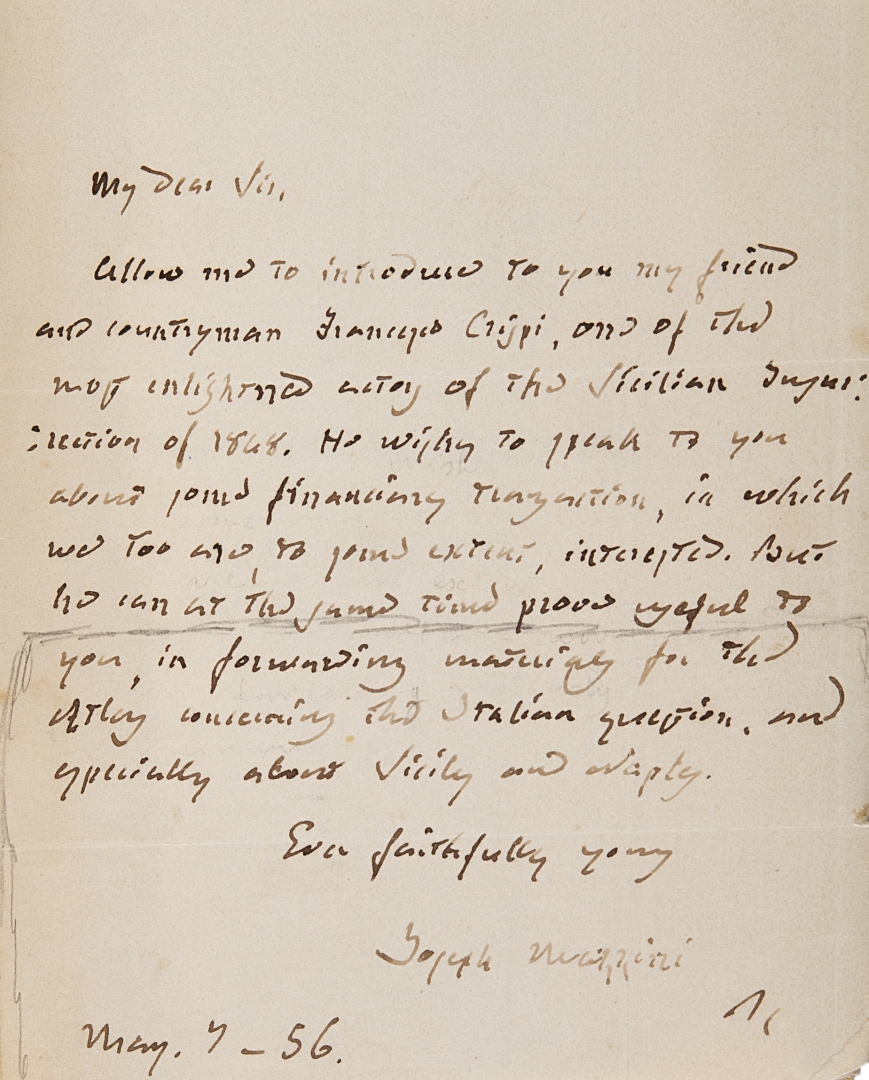 My dear Sir,
Allow me to introduce to you my friend
and countryman Francesco Crispi, one of the
most enlightened actors of the Sicilian Insur:
:rection of 1848. He wishes to speak to you
about some financiary transaction, in which
we too are, to some extent, interested. But
he can at the same time prove useful to
you, in forwarding materials for the
concerning the Italian question, and
especially about Sicily and Naples.
Ever faithfully yours
Joseph Mazzini
May. 7 – 56.